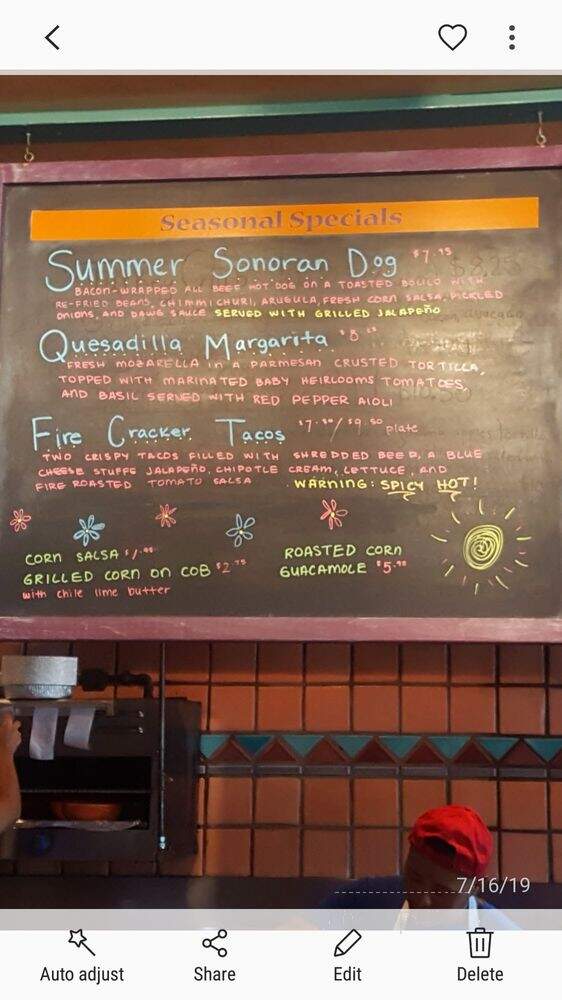 Seasonal Specials
Summer Sonoran Dog $7.95
BACON-WRAPPED ALL BEEF HOT DOG ON A TOASTED BOLLO WITH
RE-FRIED BEANS, CHIMMICHURI, ARUGULA, FRESH CORN SALSA, PICKLED
ONIONS, AND DAWG SAUCE SERVED WITH GRILLED JALAPEÑO
Quesadilla Margarita $8
FRESH MOZARELLA IN A PARMESAN CRUSTED TORTILLA,
TOPPED WITH MARINATED BABY HEIRLOOMS TOMATOES,
AND BASIL SERVED WITH RED PEPPER AIOLI
Fire Cracker Tacos $7.50/$9.50 plate
TWO CRISPY TACOS FILLED WITH SHREDDED BEEF, A BLUE
CHEESE STUFFS JALAPEÑO, CHIPOTLE CREAM, LETTUCE, AND
FIRE ROASTED TOMATO SALSA WARNING: SPICY HOT!
CORN SALSA
GRILLED CORN ON COB $2.75
with chile lime butter
ROASTED CORN
GUACAMOLE
7/16/19
Auto adjust
Share
Edit
Delete